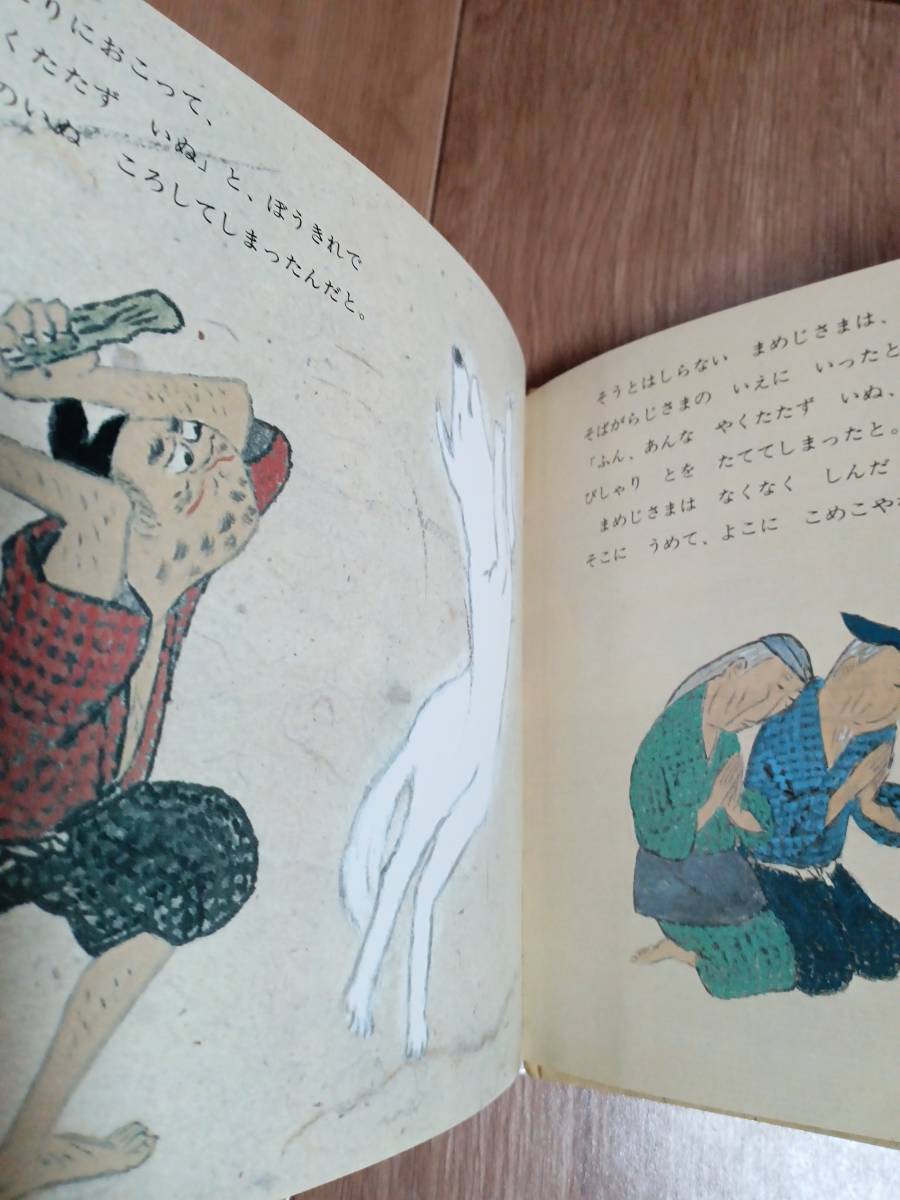 りにおこって、
くたたず いぬ」と、ぼうきれで
のいぬ ころしてしまったんだと。
そうとはしらない まめじさまは、
そばがらじさまの いえに いったと
「ふん、あんな やくたたず いぬ、
ぴしゃり とを たててしまったと。
まめじさまは なくなく しんだ
そこに うめて、よこに こめこやな